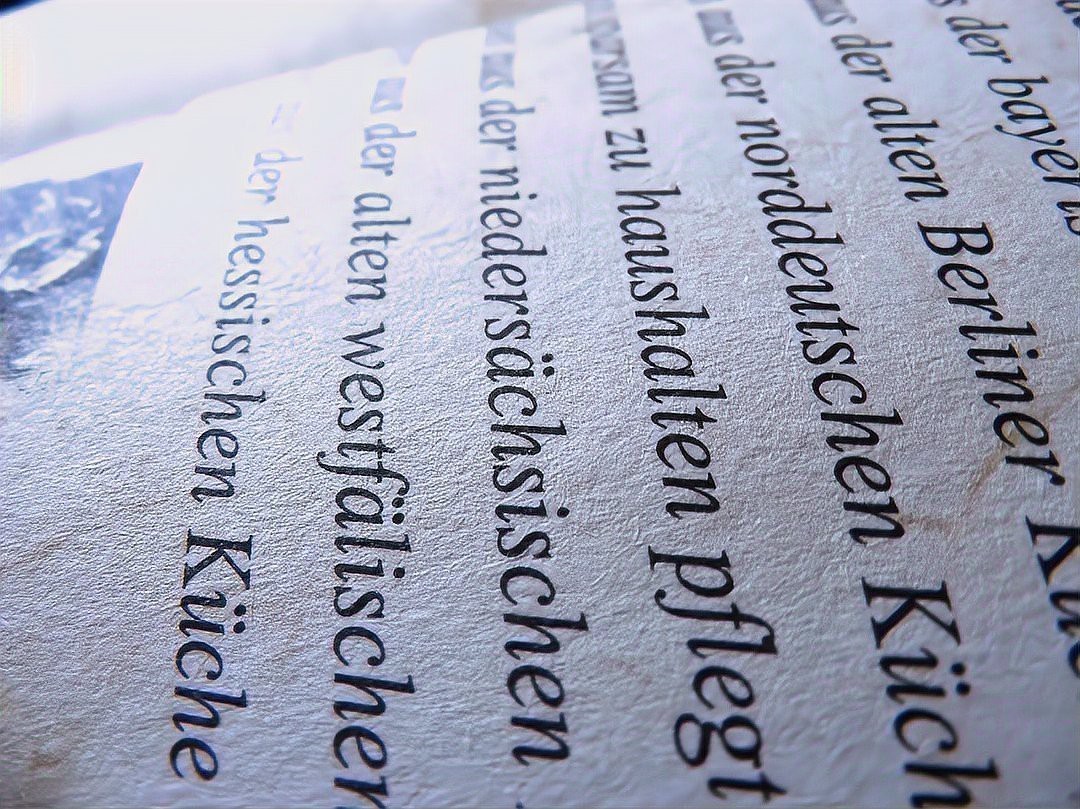 der bayeris
aus der alten Berliner Küc
aus der norddeutschen Küch
zu haushalten pflegt
aus der niedersächsischen
aus der alten westfälischen
der hessischen Küche